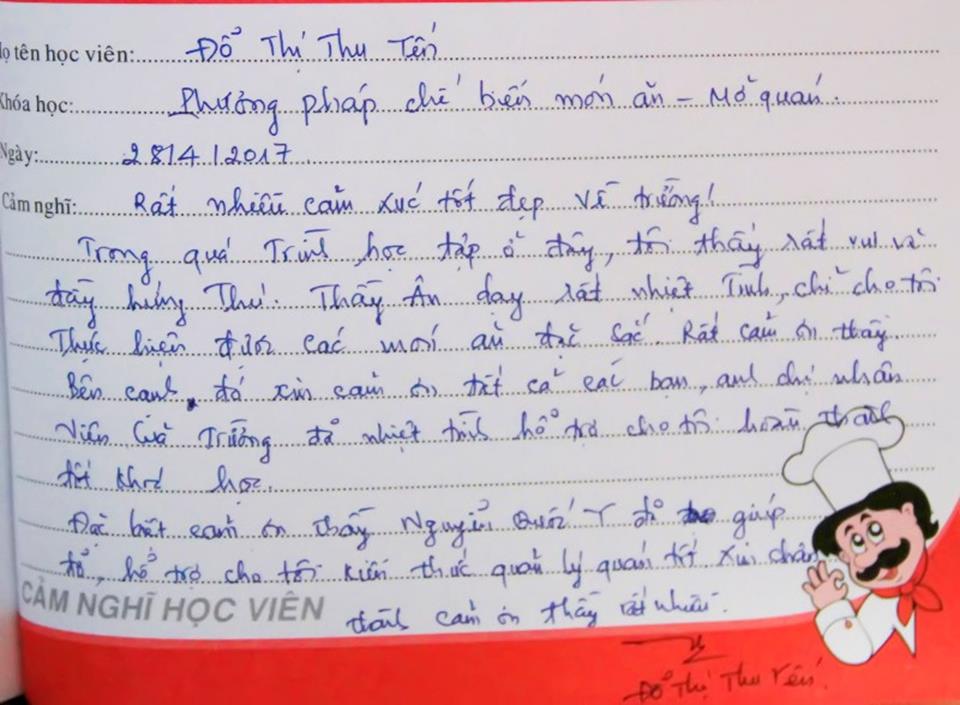 Họ tên học viên: Đổ Thị Thu Yến
Khóa học: Phương pháp chế biến món ăn - Mở quán.
Ngày: 28/4/2017
Cảm nghĩ: Rất nhiều cảm xúc tốt đẹp về trường!
Trong quá trình học tập ở đây, tôi thấy rất vui và
đầy hứng thú. Thầy Ân dạy rất nhiệt tình, chỉ cho tôi
Thực hiện được các món ăn đặc sắc. Rất cảm ơn thầy
Bên cạnh đó xin cảm ơn tất cả các bạn, anh chị nhân
viên của Trường đã nhiệt tình hổ trợ cho tôi hoàn thành
tốt khoá học.
Đặc biệt cảm ơn thầy Nguyễn Quốc Y đã giúp
đở, hổ trợ cho tôi kiến thức quản lý quán tốt xin chân
thành cảm ơn thầy rất nhiều.
CẢM NGHĨ HỌC VIÊN
Đổ Thị Thu Yến.